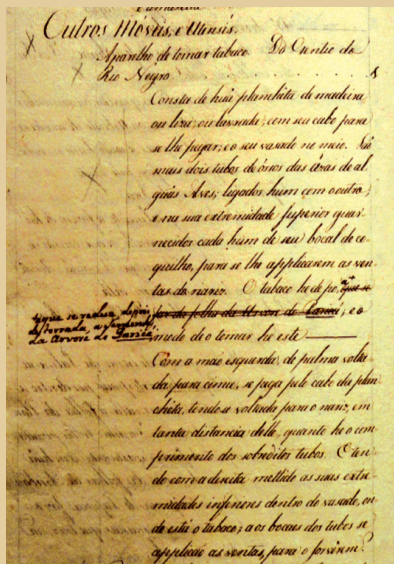 Outros Móveis, e Utensis.
Aparelho de tomar tabaco. Do Gentio do
Rio Negro
Consta de huã planchita de madeira
ou liza, ou lavrada; com seu cabo para
se lhe pegar; e o seu vasado no meio. São
mais dois tubos de óssos das côxas de al
guãs Aves, ligados hum com o outro;
e na sua extremidade superior guar
necidos cada hum de seu bocal de co-
quilho, para se lhe applicarem as ven
tas do nariz. O tabaco he de pó, a que se
far da folha da Arvore de Paricá; e o
a que se reduz, depois
de torrada, a semente
da arvore de Paricá
modo de o tomar he este
Com a mao esquerda, de palma volta
da para cima, se pega pelo cabo da plan
chita, tendo-se voltada para o nariz, em
tanta distancia delle, quanto he o com
primento dos sobreditos tubos. E ten
do com a direita mettido as suas extre
midades inferiores dentro do vasado, on
de está o tabaco; aos bocaes dos tubos se
applicão as ventas, para o sorvirem.